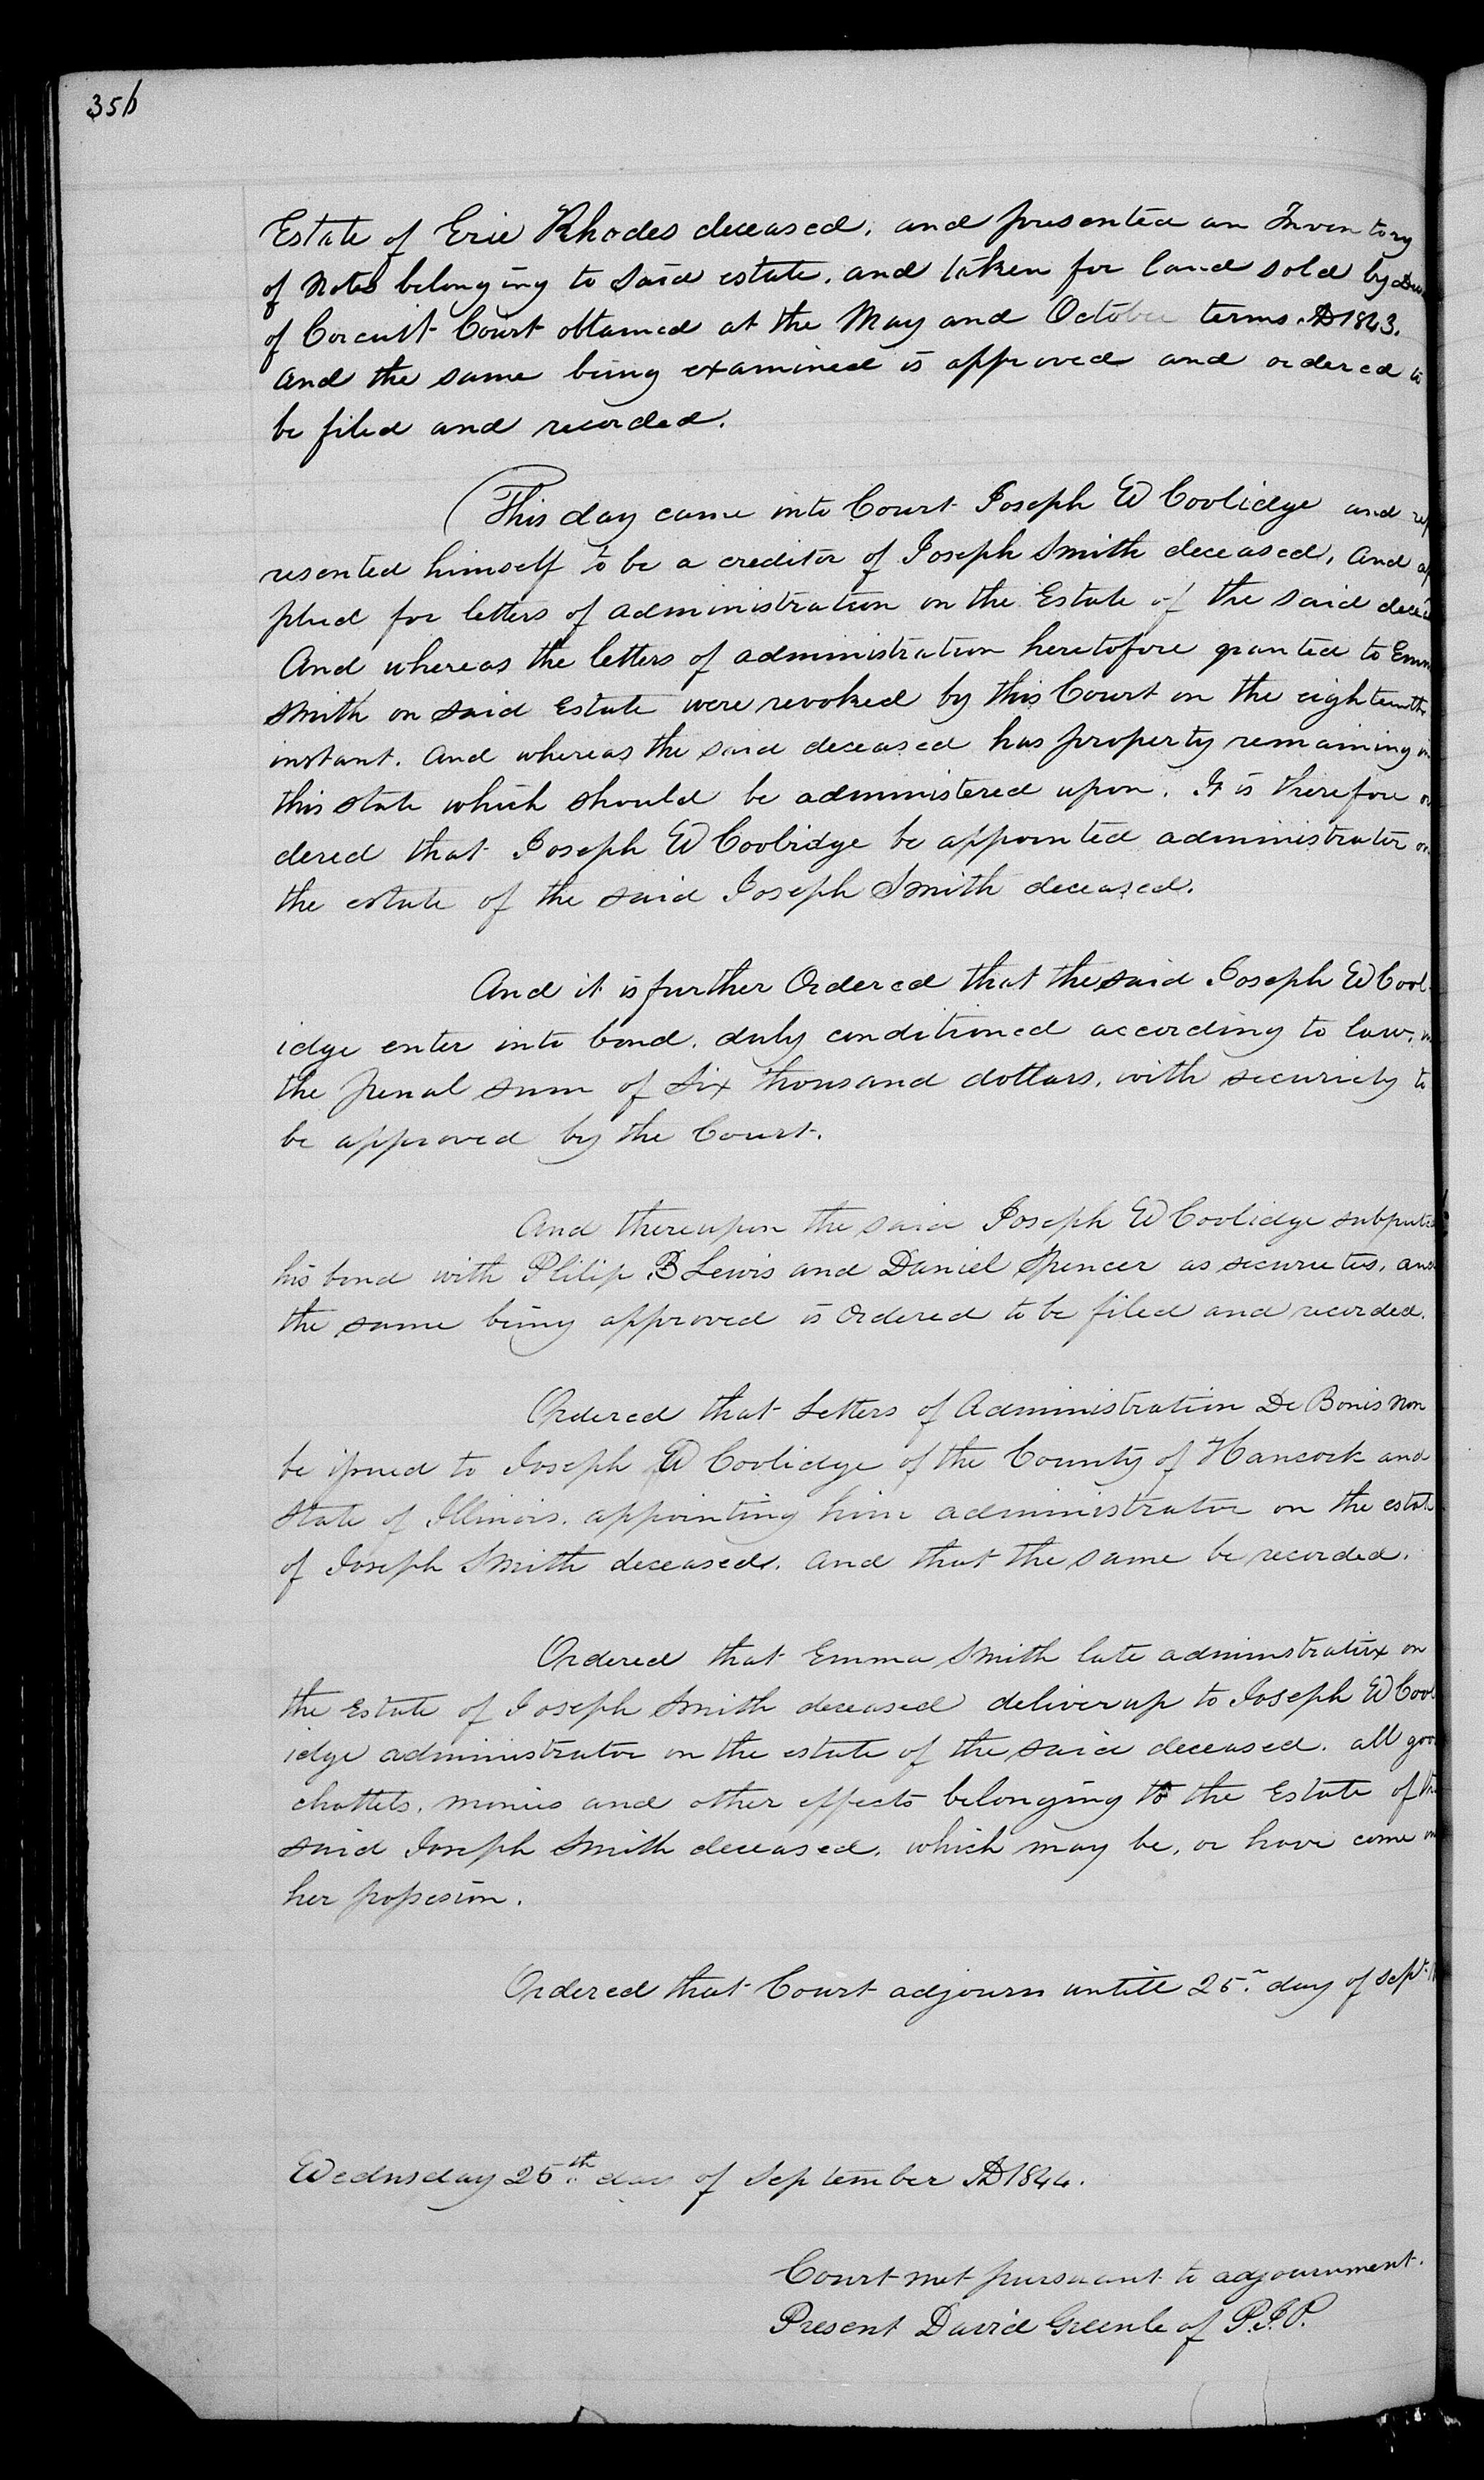 356
Estate of Erie Rhodes deceased. and presented an Inventory
of Notes belonging to said estate. and taken for land sold by
of Corcuit Court obtained at the May and October terms AD 1843.
And the same being examined is approved and ordered to
be filed and recorded.
This day came into Court Joseph W Coolidge and rep
resented himself to be a creditor of Joseph Smith deceased, And ap
plied for letters of administration on the Estate of the said
And whereas the letters of administration heretofore granted to Emm
Smith on said Estate were revoked by this Court on the eighteenth
instant. And whereas the said deceased has property remaining in
this state which should be administered upon. It is therefore or
dered that Joseph W Coolidge be appointed administrator on
the estate of the said Joseph Smith deceased.
And it is further Ordered that the said Joseph W Cool-
idge enter into bond. duly conditioned according to law, in
the penal sum of Six thousand dollars. with securiety to
be approved by the Court.
And thereupon the said Joseph W Coolidge
his bond with Philip B Lewis and Daniel Spencer as secureties, and
the same being approved is Ordered to be filed and recorded.
Ordered that Letters of Administration De Bonis Non
be issued to Joseph W Coolidge of the County of Hancock and
State of Illinois. appointing him administrator on the estate
of Joseph Smith deceased. And that the same be recorded.
Ordered that Emma Smith late adminstratrix on
the Estate of Joseph Smith deceased deliver up to Joseph W Cool
idge administrator on the estate of the said deceased. all goo
chattels, monies and other effects belonging to the Estate of the
said Joseph Smith deceased. which may be, or have come in
her possesion.
Ordered that Court adjourn untill 25th day of Sept
Wednsday 25th day of September AD 1844.
Court met pursuant to adjournment.
Present David Greenleaf P.J.P.